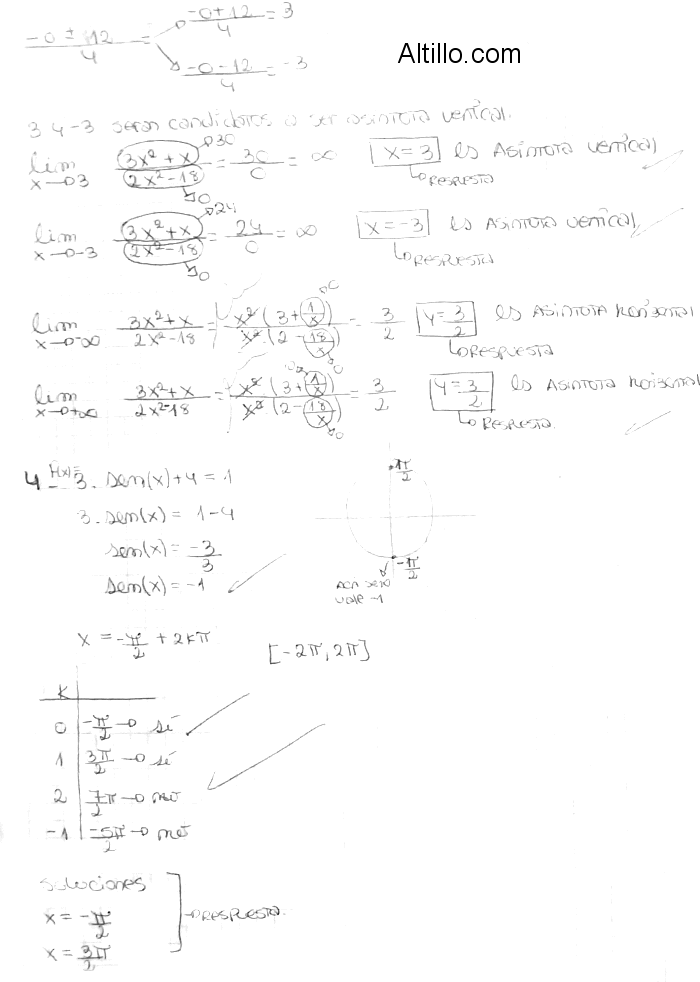 -0 ± 12 / 4 = -0+12 / 4 = 3
-0-12 / 4 = -3
Altillo.com
3 y -3 seran candidatos a ser asintota vertical.
lim x→3 3x²+x / 2x²-18 = 30 / 0 = ∞ x=3 es Asintota vertical
30
0
RESPUESTA
lim x→-3 3x²+x / 2x²-18 = 24 / 0 = ∞ x=-3 es Asintota vertical
24
0
RESPUESTA
lim x→-∞ 3x²+x / 2x²-18 = x²(3+1/x) / x²(2-18/x) = 3/2 y=3/2 es Asintota horizontal
0
0
RESPUESTA
lim x→+∞ 3x²+x / 2x²-18 = x²(3+1/x) / x²(2-18/x) = 3/2 y=3/2 es Asintota
0
0
RESPUESTA
4 F(x)= 3.sen(x)+4=1
3.sen(x)= 1-4
sen(x)= -3/3
sen(x)=-1
π/2
-π/2
vale -1
x = -π/2 + 2kπ
[-2π, 2π]
K
0 -π/2 → sí
1 3π/2 → sí
2 7π/2 → no
-1 -5π/2 → no
soluciones
x=-π/2 → RESPUESTA
x=3π/2